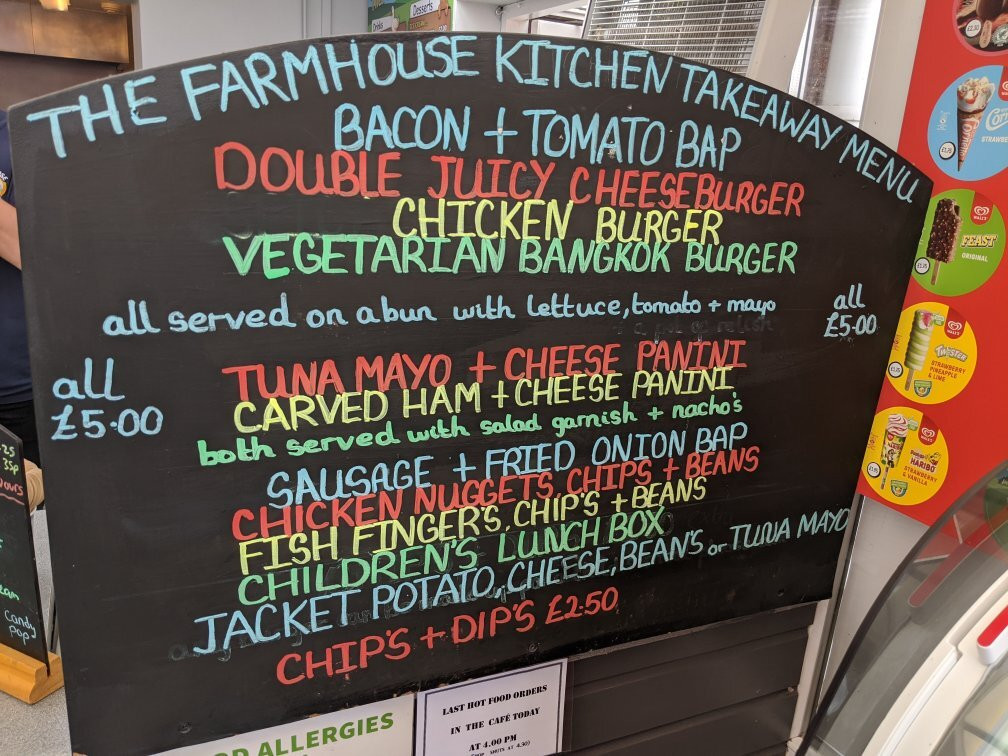 THE FARMHOUSE KITCHEN TAKEAWAY MENU
BACON + TOMATO BAP
DOUBLE JUICY CHEESEBURGER
CHICKEN BURGER
VEGETARIAN BANGKOK BURGER
all served on a bun with lettuce, tomato + mayo
all
£5.00
TUNA MAYO + CHEESE PANINI
CARVED HAM + CHEESE PANINI
both served with salad garnish + nacho's
all
£5.00
SAUSAGE + FRIED ONION BAP
CHICKEN NUGGETS CHIPS + BEANS
FISH FINGER'S, CHIP'S + BEANS
CHILDREN'S LUNCH BOX
JACKET POTATO, CHEESE, BEAN'S or TUNA MAYO
CHIP'S + DIP'S £2.50
OD ALLERGIES
LAST HOT FOOD ORDERS
IN THE CAFÉ TODAY
AT 4.00 PM
Desserts
35p
Candy
Pop
WALL'S
FEAST
ORIGINAL
WALL'S
TWISTER
STRAWBERRY
PINEAPPLE
& LIME
WALL'S
HARIBO
STRAWBERRY
& VANILLA